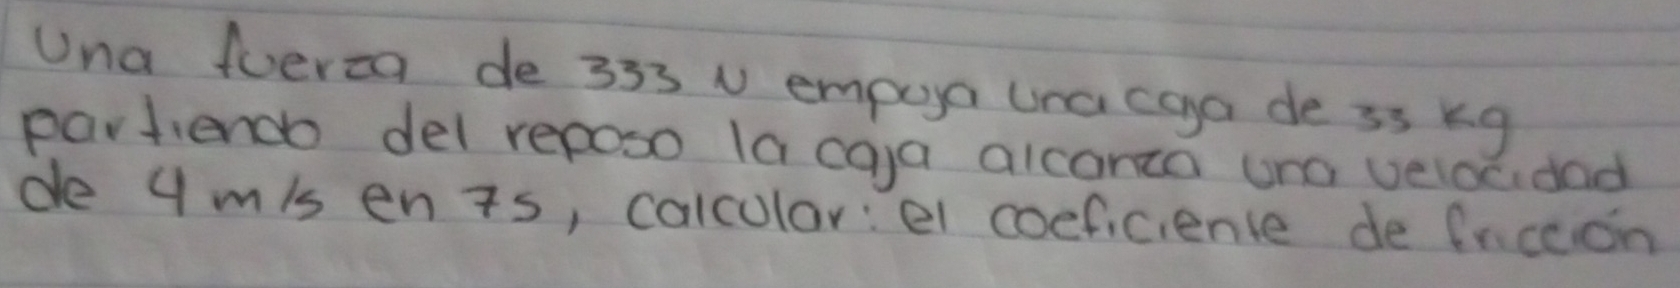 Una fuerza de 333 N empuja una caja de 33 kg
partiendo del reposo la caja alcanza una velocidad
de 4 m/s en 7s, calcular: el coeficiente de fricción